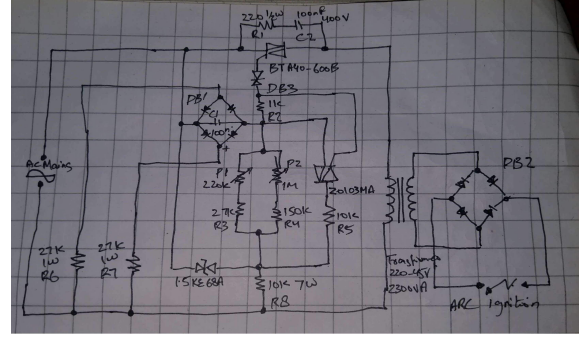 220 1/2W
R1
100nF
400V
C2
BTA40-600B
DB3
11K
R2
DB1
C1
100n
+
AC Mains
P1
220K
P2
1M
Z0103MA
DB2
27K
R3
150K
R4
10K
R5
27K
1W
R6
27K
1W
R7
1.5KE68A
10K 7W
R8
Transformer
220-45V
2300VA
ARC Ignition